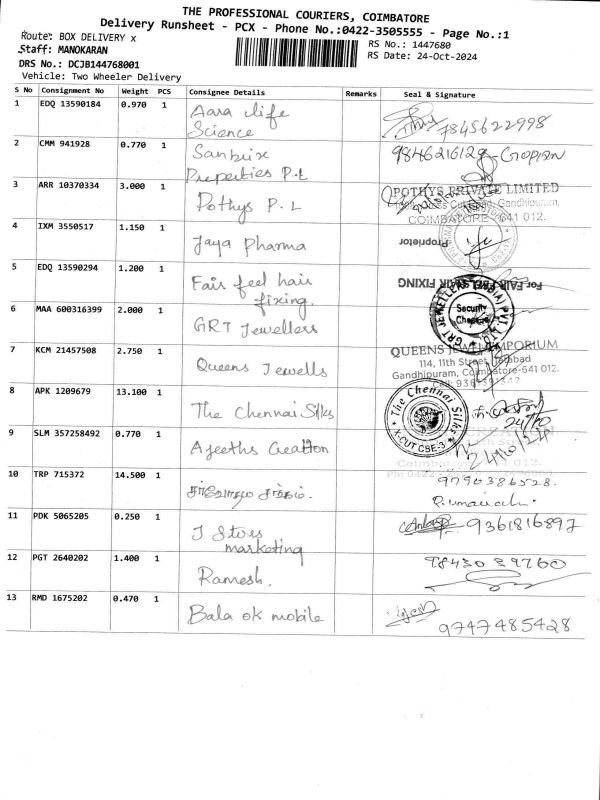 THE PROFESSIONAL COURIERS, COIMBATORE
Delivery Runsheet - PCX - Phone No.:0422-3505555 - Page No.:1
Route: BOX DELIVERY x
RS No.: 1447680
Staff: MANOKARAN
RS Date: 24-Oct-2024
DRS No.: DCJB144768001
Vehicle: Two Wheeler Delivery
S No Consignment No Weight PCS Consignee Details Remarks Seal & Signature
1 EDQ 13590184 0.970 1 Aara life
Science 7845622998
2 CMM 941928 0.770 1 Sanbrix 9846216129 Gopian
Properties P.L
3 ARR 10370334 3.000 1 Pothys P.L POTHYS PRIVATE LIMITED
Gandhipuram,
COIMBATORE - 641 012.
4 IXM 3550517 1.150 1 Jaya Pharma Proprietor
5 EDQ 13590294 1.200 1 Fair feel hair For FAIR FEEL HAIR FIXING
fixing.
6 MAA 600316399 2.000 1 GRT Jewellers GRT JEWELLERS (INDIA) PVT LTD
Security
Checked
7 KCM 21457508 2.750 1 Queens Jewells QUEENS JEWEL EMPORIUM
114, 11th Street
Gandhipuram, Coimbatore-641 012.
8 APK 1209679 13.100 1 The Chennai Silks The Chennai Silks
X-CUT CBE-3
24/10
9 SLM 357258492 0.770 1 Ajeeths Creation 24/10/24
Coimbatore 012.
10 TRP 715372 14.500 1 சர்வோதய சங்கம். 9790386528
P. umaiyal
11 PDK 5065205 0.250 1 J Stores 9361816897
marketing
12 PGT 2640202 1.400 1 Ramesh. 98430 39760
13 RMD 1675202 0.470 1 Bala ok mobile
9747485428